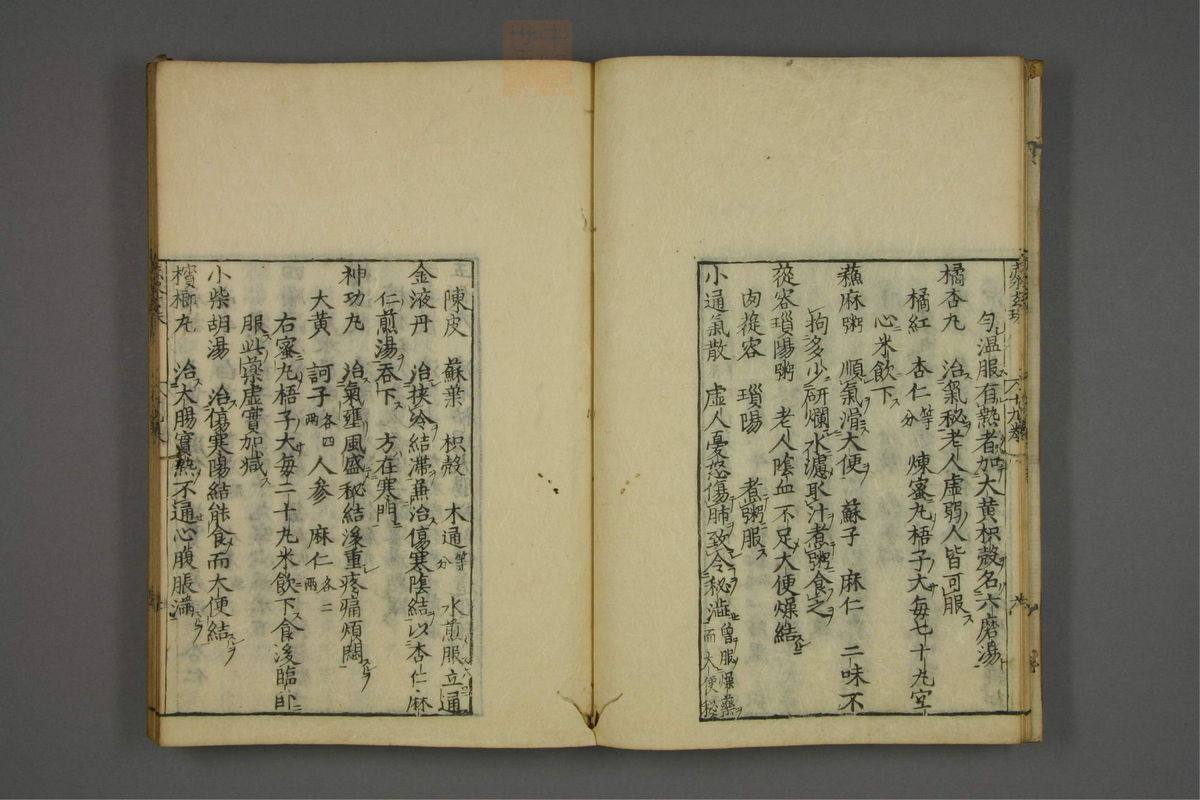 勻温服有熱者加大黄枳殻名六磨湯
橘杏丸 治氣秘老人虚弱人皆可服
橘紅 杏仁等分 煉蜜丸梧子大毎七十丸空
心米飲下
蘓麻粥 順氣滑大便 蘇子 麻仁 二味不
拘多少研爛水濾取汁煮粥食之
蓯容瑣陽粥 老人陰血不足大便燥結
肉蓯容 瑣陽 煮粥服
小通氣散 虚人憂怒傷肺致令秘澁曽服燥藥而大便秘
陳皮 蘇葉 枳殻 木通等分 水煎服立通
金液丹 治挟冷結滞兼治傷寒陰結以杏仁麻
仁煎湯吞下 方在寒門
神功丸 治氣壅風盛秘結後重疼痛煩悶
大黄 訶子各四両 人參 麻仁各二両
右蜜丸梧子大毎二十丸米飲下食後臨卧
服此藥虚實加减
小柴胡湯 治傷寒陽結能食而大便結
檳榔丸 治大腸實熱不通心腹脹滿